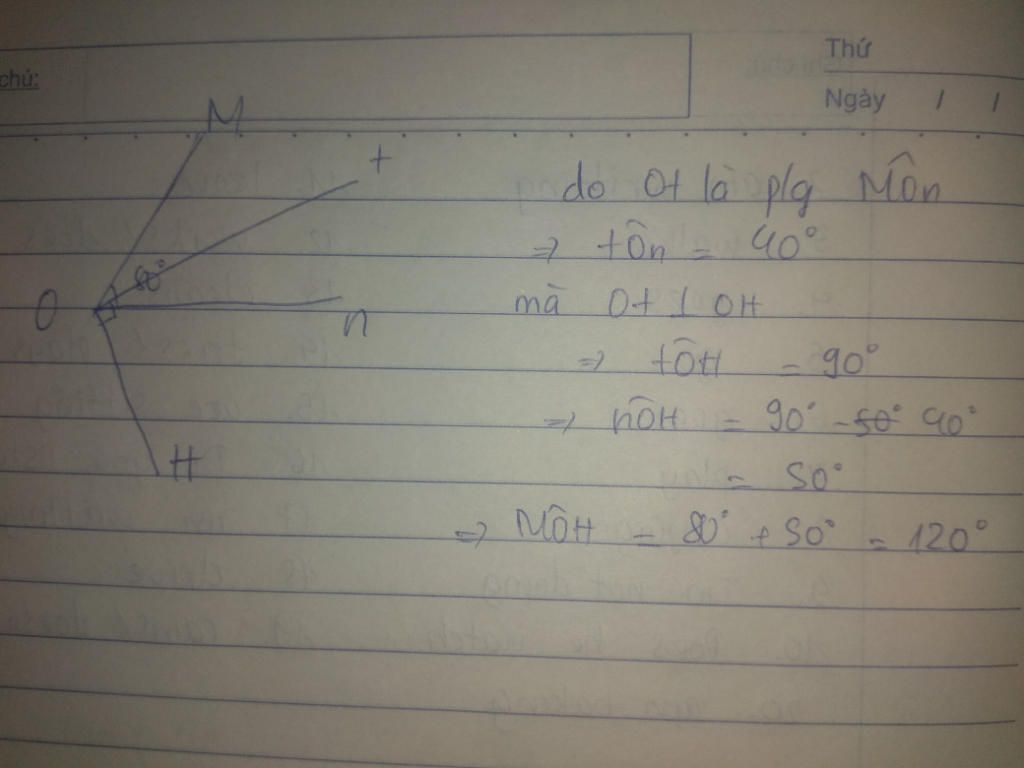 chú:
Thứ
Ngày / /
M
t
80°
O
n
H
do Ot là p/g MÔn
=> tÔn = 40°
mà Ot ⊥ OH
=> tÔH = 90°
=> nÔH = 90° - 50° 40°
= 50°
=> MÔH = 80° + 50° = 120°